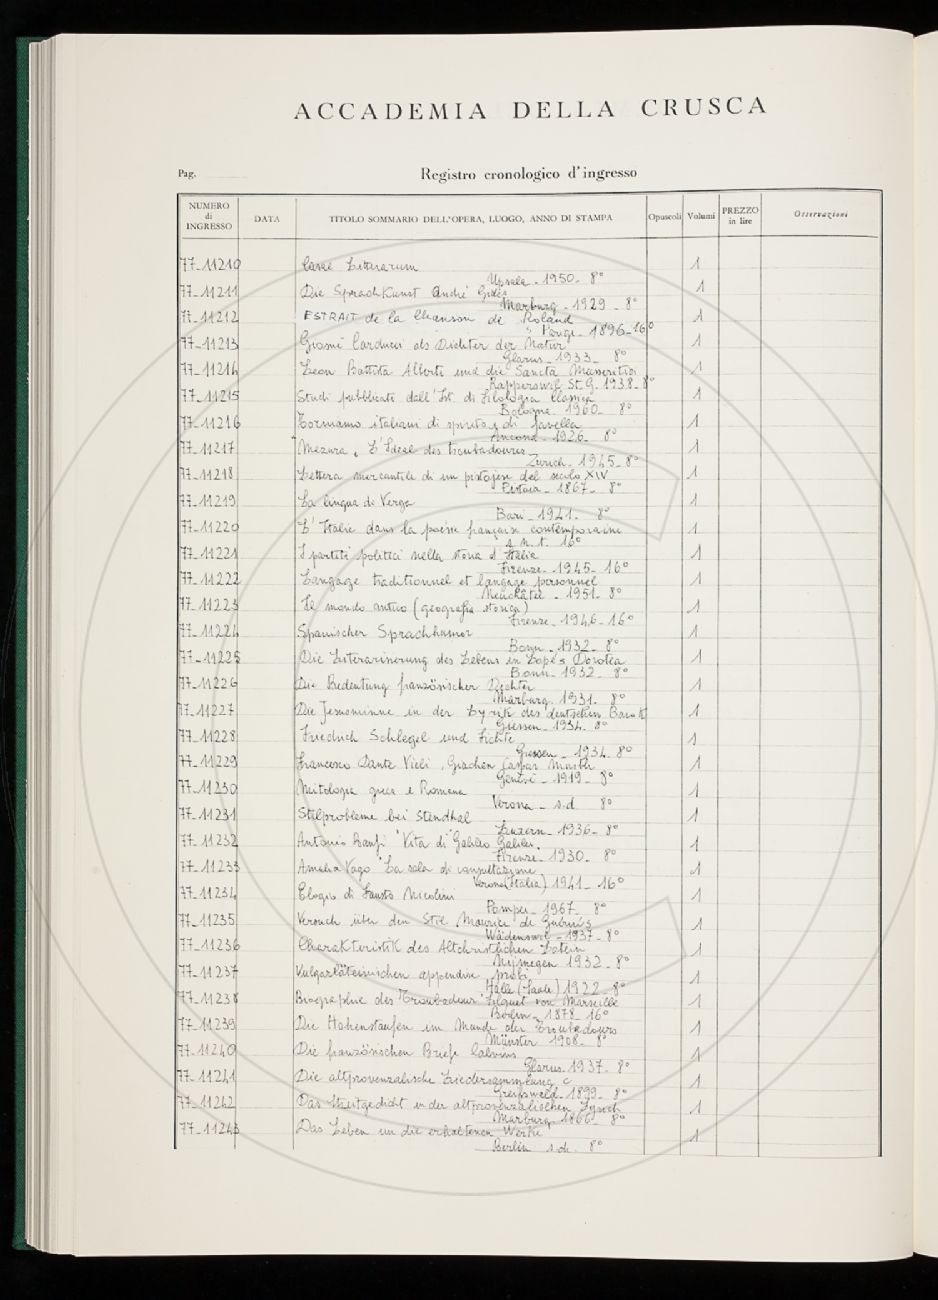 ACCADEMIA DELLA CRUSCA
Pag.
Registro cronologico d'ingresso
NUMERO di INGRESSO DATA TITOLO SOMMARIO DELL'OPERA, LUOGO, ANNO DI STAMPA Opuscoli Volumi PREZZO in lire Osservazioni
77-11210 Litterarum 1
Upsala - 1950 - 8°
77-11211 Die SprachKunst André Gides 1
Marburg - 1929 - 8°
77-11212 ESTRAIT de la Chanson de Roland 1
Parigi - 1896-16°
77-11213 Giosuè Carducci als Dichter der Natur 1
Glarus - 1933 - 8°
77-11214 Leon Battista Alberti und die Sancta Masseritia 1
Rapperswil St.G. 1938-8°
77-11215 Studi pubblicati dall'Ist. di Filologia Classica 1
Bologna - 1960 - 8°
77-11216 Torniamo italiani di spirito e di favella 1
Ancona - 1926 - 8°
77-11217 Mezura, L'Ideal des troubadoures 1
Zurich - 1945-8°
77-11218 Lettera mercantile di un pistojese del secolo XIV 1
Pistoia - 1867 - 8°
77-11219 La lingua di Verga 1
Bari - 1941 - 8°
77-11220 L'Italie dans la poésie française contemporaine 1
s.n.t. 16°
77-11221 I partiti politici nella storia d'Italia 1
Firenze - 1945-16°
77-11222 Langage traditionnel et langage personnel 1
Neuchâtel - 1951 - 8°
77-11223 Il mondo antico (geografia storica) 1
Firenze - 1946-16°
77-11224 Spanischer Sprachhumor 1
Bonn - 1932 - 8°
77-11225 Die Literarisierung des Lebens in Lope's Dorotea 1
Bonn - 1932 - 8°
77-11226 Die Bedeutung französischer Dichter 1
Marburg - 1931 - 8°
77-11227 Die Jesuminne in der Lyrik des deutschen Barok 1
Giessen - 1934 - 8°
77-11228 Friedrich Schlegel und Fichte 1
Giessen - 1934 - 8°
77-11229 Francesco Dante Vieli, Grachen Caspar 1
1919 - 8°
77-11230 Mitologia greca e Romana 1
Verona - s.d. 8°
77-11231 Stilprobleme bei Stendhal 1
Luzern - 1936 - 8°
77-11232 Antonio Banfi "Vita di Galileo Galilei" 1
Firenze - 1930 - 8°
77-11233 Amalia Vago "La sala di consultazione 1
Verona (Italia) 1941 - 16°
77-11234 Elogio di Fausto Nicolini 1
Pompei - 1967 - 8°
77-11235 Versuch über den Stil Maurice de Guérin's 1
Wädenswil - 1937 - 8°
77-11236 CharakteristiK des Altchristlichen Latein 1
Nijmegen 1932 - 8°
77-11237 Vulgarläteinischen appendix probi 1
Halle (Saale) 1922 - 8°
77-11238 Biographie des Troubadours Folquet von Marseille 1
Berlin - 1878 - 16°
77-11239 Die Hohenstaufen im Munde der Troubadours 1
Münster 1908 - 8°
77-11240 Die französischen Briefe Calvins 1
Glarus - 1937 - 8°
77-11241 Die altprovenzalische Liedersammlung c 1
Greifswald - 1899 - 8°
77-11242 Das Streitgedicht in der altprovenzalischen Lyrik 1
Marburg - 1886 - 8°
77-11243 Das Leben un die erhaltenen Werke 1
Berlin s.d. 8°